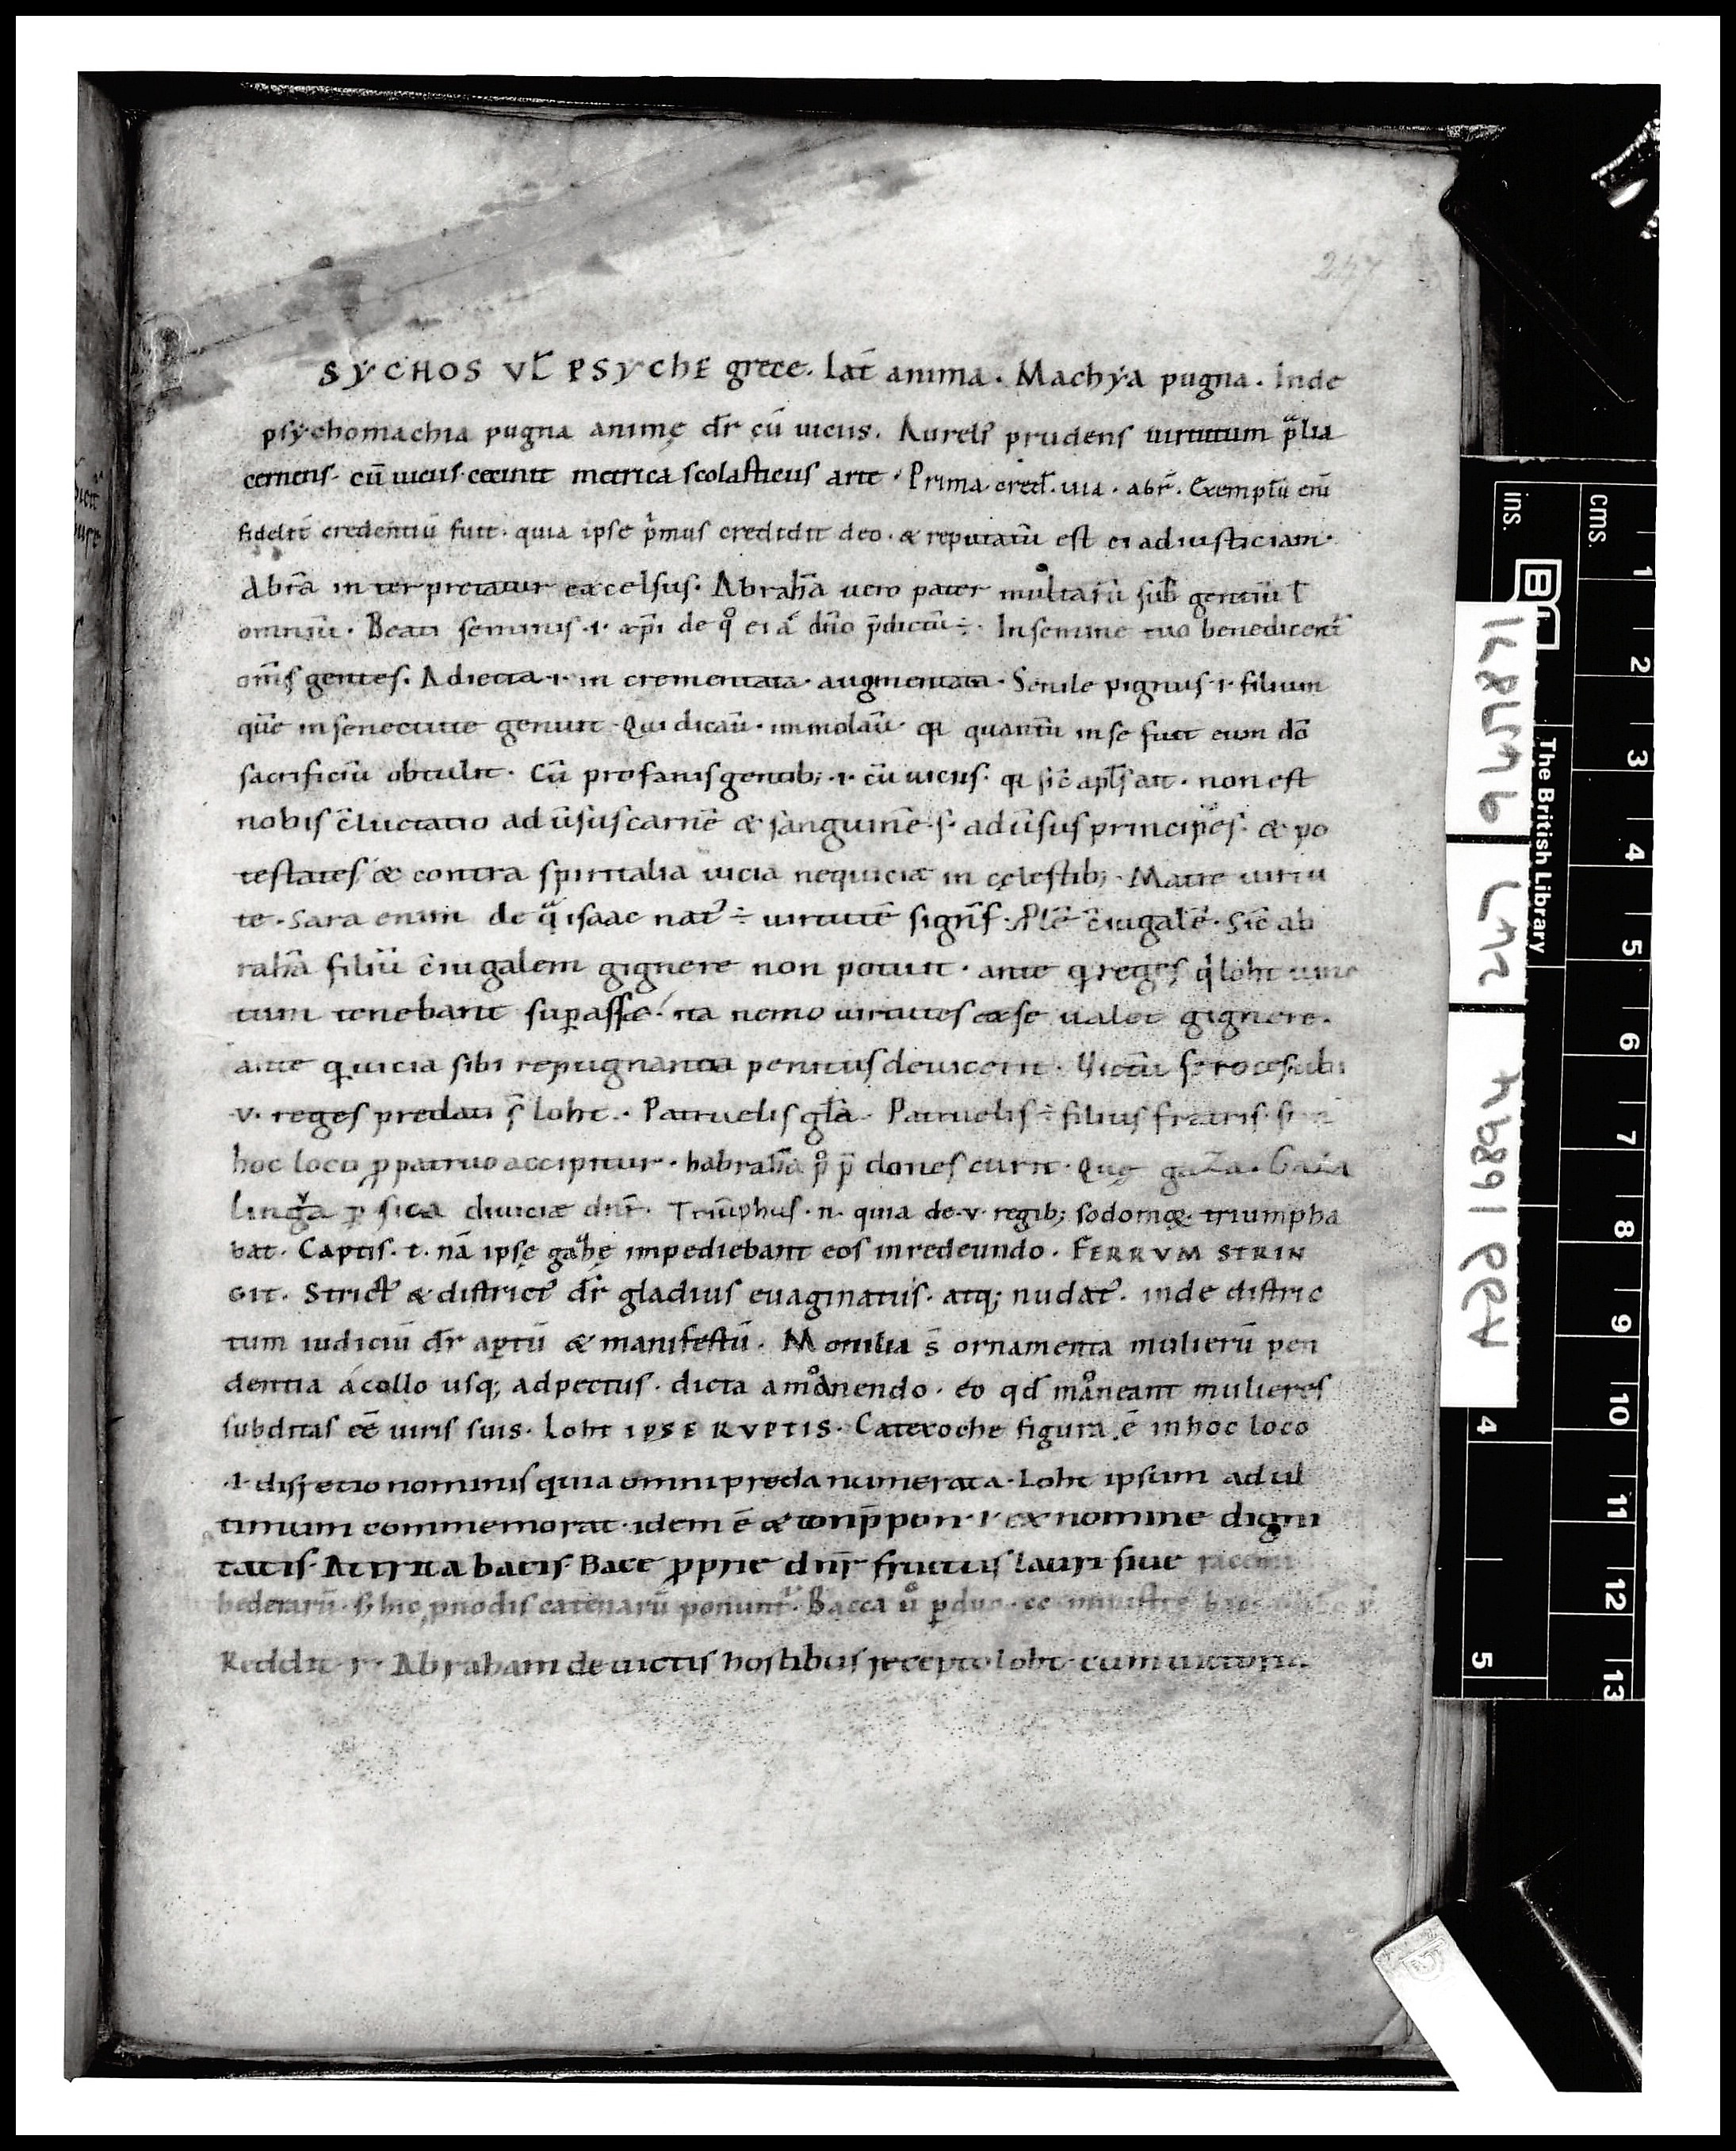 247
SYCHOS VL̄ PSYCHE grece. Lat̄ anima. Machẏa pugna. Inde
psẏchomachia pugna animę dr̄ cū uiciis. Aureli᾽ prudens uirtutum p̄lia
cernens. cū uiciis cecinit metrica scolasticus arte. Prima. cred̄. uia. abr̄. Exemplū eni
fidelit̄ credentiū fuit. quia ipse p̄mus credidit deo. & reputatū est ei ad iusticiam.
Abrā interpretatur excelsus. Abrahā uero pater multarū sub̄ gentiū l̄
omniū. Beati seminis .i. xp̄i de q° ei a dn̄o p̄dictū ÷. In semine tuo benedicent᾽
om̄s gentes. Adiecta .i. in crementata. augmentata. Senile pignus .i. filium
quē in senectute genuit. Qui dicaū. immolaū. quantū in se fuit eum dō
sacrificiū obtulit. Cū profanis gentib; .i. cū uiciis. sic̄ apl̄s ait. non est
nobis c̄luctatio aduersus carnē & sanguinē. s. aduersus principes. & po
testates & contra spiritalia uicia nequiciæ in cęlestib;. Matre uirtu
te. Sara enim de q̄ isaac nat᾽ ÷ uirtutē signif̄. c̄iugalē. Sic̄ ab
rahā filiū c̄iugalem gignere non potuit. ante q̄ reges q̄ loht uinc
tum tenebant sup̱asse. ita nemo uirtutes ex se ualet gignere.
ante q̄ uicia sibi repugnantia penitus deuicerit. Victū feroces ubi
v. reges predati s̄ loht. Patruelis gl̄a. Patruelis ÷ filius fratris.
hoc loco p̱ patruo accipitur. habrahā dones eurit. Quę gaza. Gaza
lingua p̱sica diuiciæ dn̄r. Triūphus. n. quia de .v. regib; sodomæ triumpha
bat. Captis. t. nā ipsę gabę impediebant eos in redeundo. FERRVM STRIN
GIT. Strict᾽ & district᾽ dr̄ gladius euaginatus. atq; nudat᾽. inde distric
tum iudiciū dr̄ ap̱tū & manifestū. Monilia s̄ ornamenta mulierū pen
dentia a collo usq; ad pectus. dicta a monendo. eo qd̄ moneant mulieres
subditas eē uiris suis. Loht IPSE RVPTIS. Cateroche figura ē in hoc loco
.i. disiectio nominis quia omni preda numerata. Loht ipsum ad ul
timum commemorat. idem ē & .i. ex nomine digni
tatis. Attrita bacis. Bace p̱prie dn̄r fructus lauri siue racemi
hederarū. s; hic p̱ nodis catenarū ponunt᾽. Bacca ū p̱ duo. cc.
Reddit .i. Abraham deuictis hostibus recepto loht cum uictoria
The British Library
ins.
cms.
1 2 3 4 5 6 7 8 9 10 11 12 13
4 5